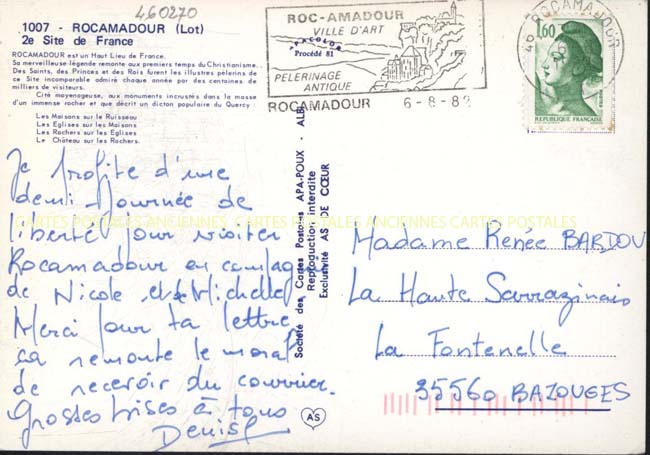 460270
1007 - ROCAMADOUR (Lot)
2e Site de France
ROCAMADOUR est un Haut Lieu de France.
Sa merveilleuse légende remonte aux premiers temps du Christianisme..
Des Saints, des Princes et des Rois furent les illustres pèlerins de
ce Site incomparable admiré chaque année par des centaines de
milliers de visiteurs.
Cité moyenageuse, aux monuments incrustés dans la masse
d'un immense rocher et que décrit un dicton populaire du Quercy :
Les Maisons sur le Ruisseau
Les Eglises sur les Maisons
Les Rochers sur les Eglises
Le Château sur les Rochers.
Je profite d'une
demi-journée de
liberté pour visiter
Rocamadour en compag
de Nicole et Michelle
Merci pour ta lettre,
ça remonte le moral
de recevoir du courrier.
Grosses bises à tous
Denise
ROC-AMADOUR
VILLE D'ART
Procédé 81
PELERINAGE
ANTIQUE
ROCAMADOUR 6-8-82
46 ROCAMADOUR
1,60
REPUBLIQUE FRANÇAISE
Société des Cartes Postales APA-POUX - ALBI
Reproduction interdite
Exclusivité AS DE CŒUR
AS
CARTES POSTALES ANCIENNES CARTES POSTALES ANCIENNES CARTES POSTALES
Madame Renée BARDOU
La Haute Sarrazinais
La Fontenelle
35560 BAZOUGES